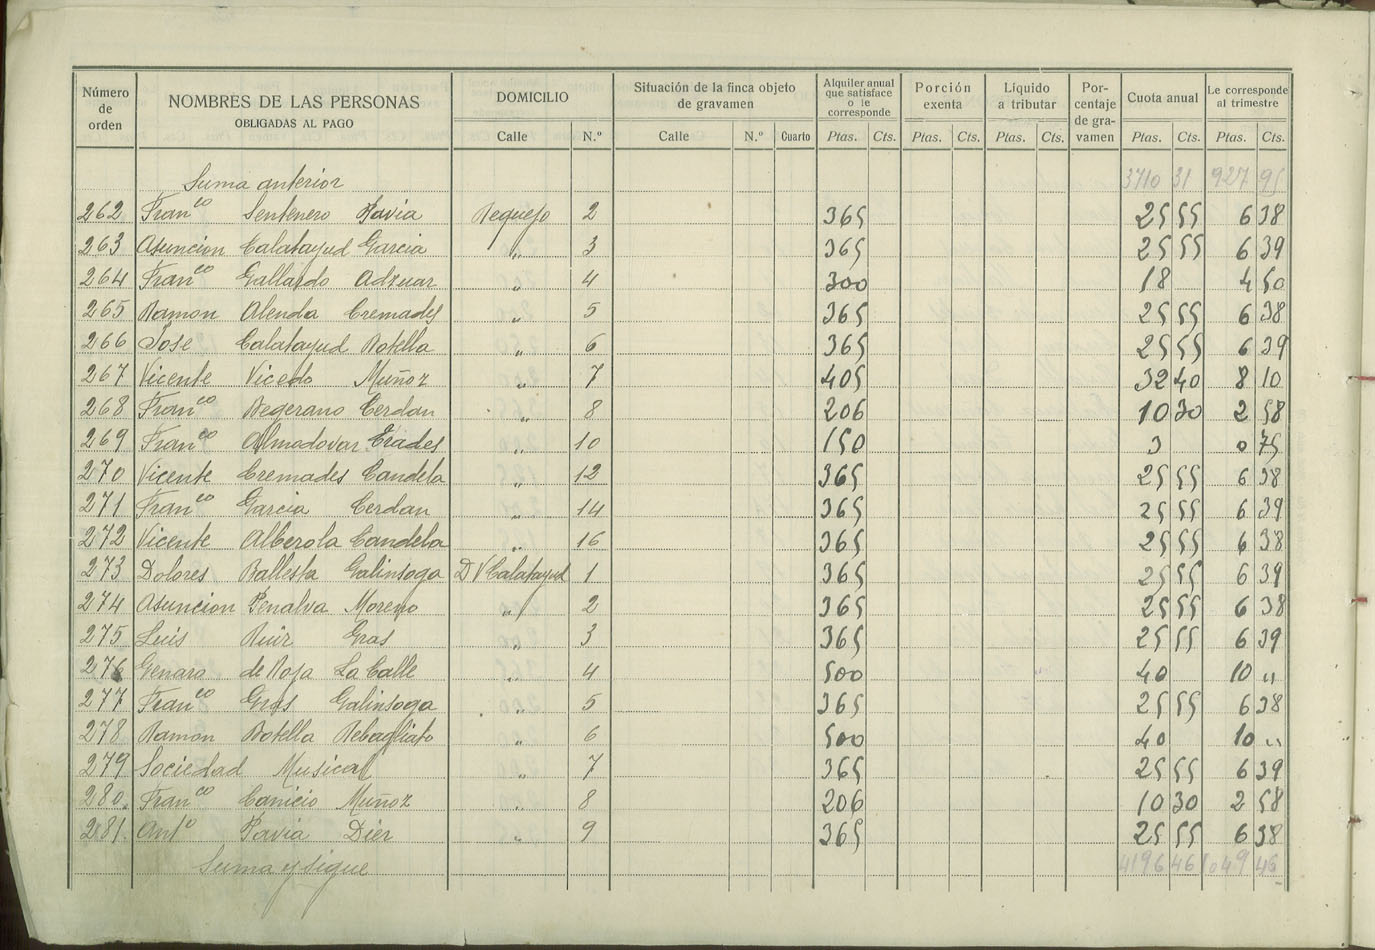 Número de orden | NOMBRES DE LAS PERSONAS OBLIGADAS AL PAGO | DOMICILIO | Situación de la finca objeto de gravamen | Alquiler anual que satisface o le corresponde | Porción exenta | Líquido a tributar | Porcentaje de gravamen | Cuota anual | Le corresponde al trimestre
Calle | N.º | Calle | N.º | Cuarto | Ptas. | Cts. | Ptas. | Cts. | Ptas. | Cts. | Ptas. | Cts. | Ptas. | Cts.
Suma anterior 3710 31 927 95
262 Franco Sentenero Pavia Requejo 2 365 25 55 6 38
263 Asuncion Calatayud Garcia " 3 365 25 55 6 39
264 Franco Gallardo Adzuar " 4 300 18 4 50
265 Ramon Alenda Cremades " 5 365 25 55 6 38
266 Jose Calatayud Botella " 6 365 25 55 6 39
267 Vicente Vicedo Muñoz " 7 405 32 40 8 10
268 Franco Begerano Cerdan " 8 206 10 30 2 58
269 Franco Almodovar Erades " 10 150 3 0 75
270 Vicente Cremades Candela " 12 365 25 55 6 38
271 Franco Garcia Cerdan " 14 365 25 55 6 39
272 Vicente Alberola Candela " 16 365 25 55 6 38
273 Dolores Ballesta Galinsoga D V Calatayud 1 365 25 55 6 39
274 Asuncion Penalva Moreno " 2 365 25 55 6 38
275 Luis Ruiz Gras " 3 365 25 55 6 39
276 Genara de Roja La Calle " 4 500 40 10 "
277 Franco Gras Galinsoga " 5 365 25 55 6 38
278 Ramon Botella Rebagliato " 6 500 40 10 "
279 Sociedad Musical " 7 365 25 55 6 39
280 Franco Canicio Muñoz " 8 206 10 30 2 58
281 Anto Pavia Dier " 9 365 25 55 6 38
Suma y sigue 4196 46 1049 46